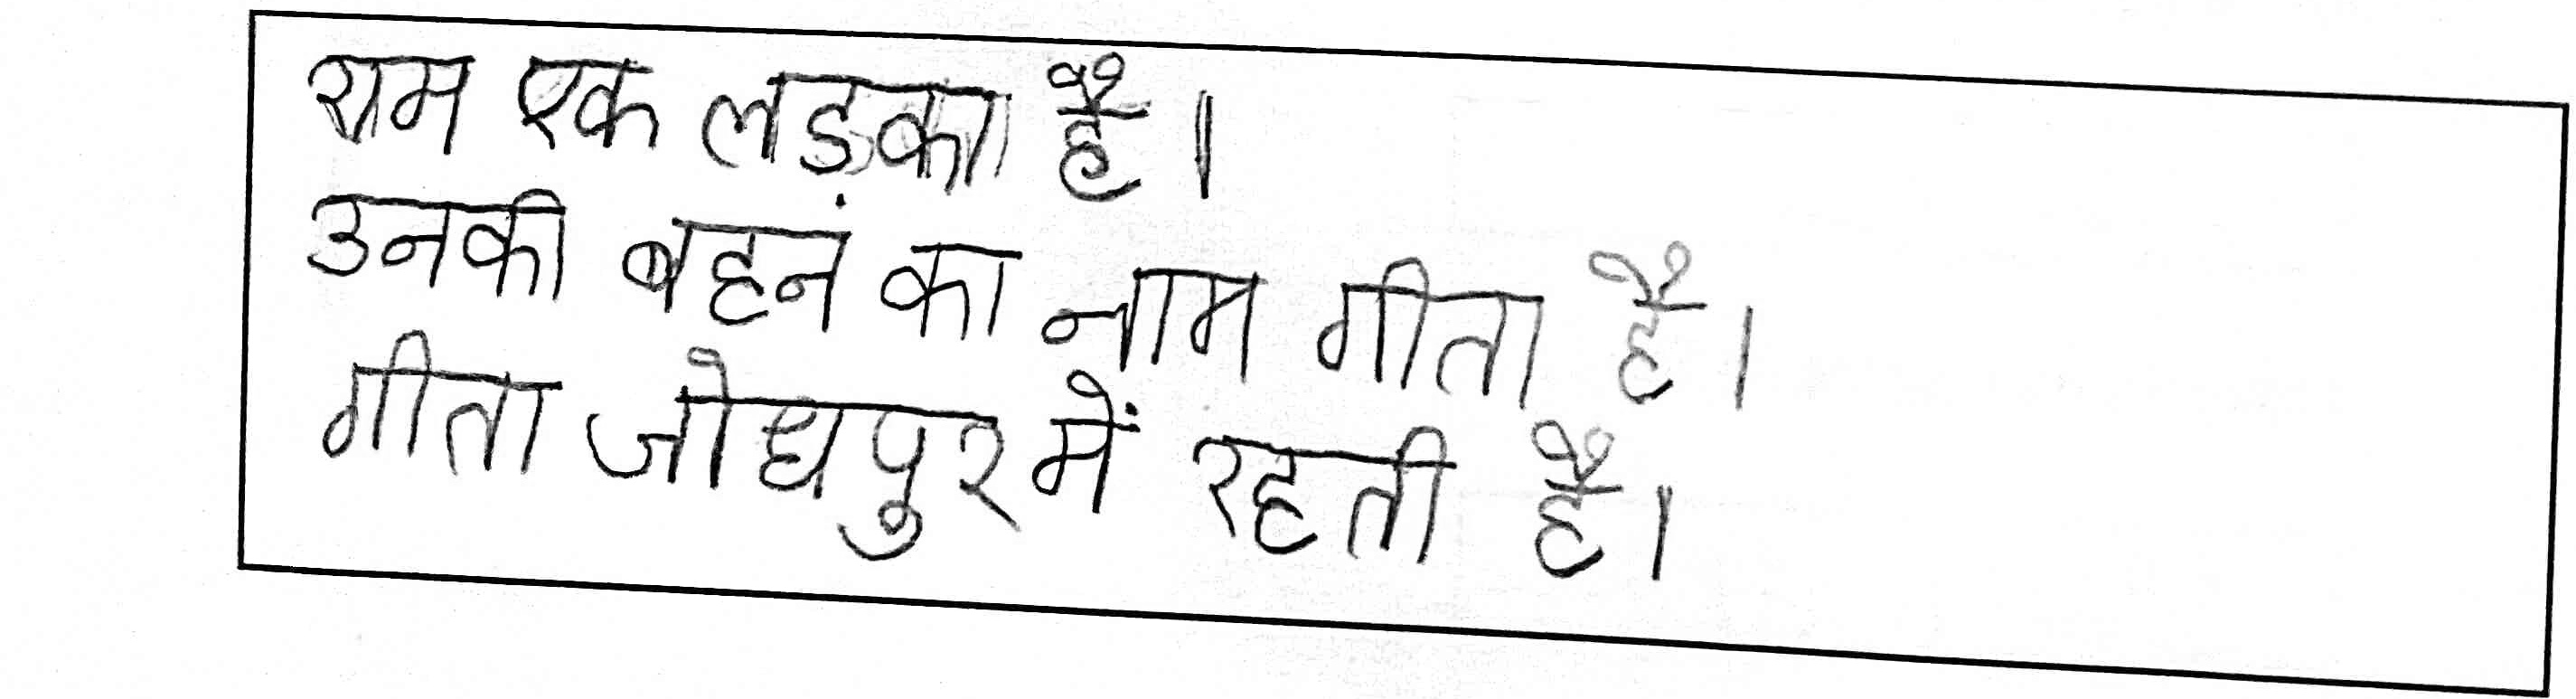 राम एक लडका है।
उनकी बहनं का नाम गीता है।
गीता जोधपुर में रहती है।